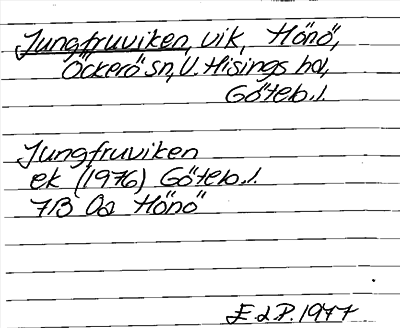 Jungfruviken, vik, Hönö,
Öckerö sn, V. Hisings hd,
Göteb. l.
Jungfruviken
ek (1976) Göteb. l.
7B 0a Hönö
E. d. P. 1977